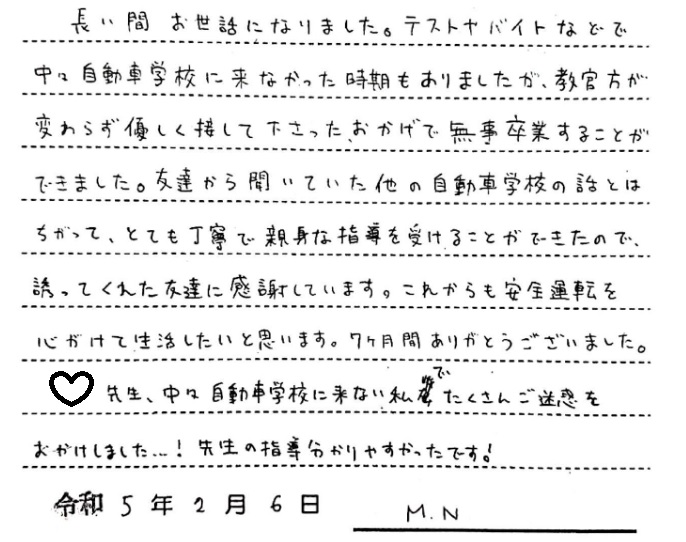 長い間 お世話になりました。テストやバイトなどで
中々自動車学校に来なかった時期もありましたが、教官方が
変わらず優しく接して下さった、おかげで無事卒業することが
できました。友達から聞いていた他の自動車学校の話とは
ちがって、とても丁寧で親身な指導を受けることができたので、
誘ってくれた友達に感謝しています。これからも安全運転を
心がけて生活したいと思います。7ヶ月間ありがとうございました。
♡先生、中々自動車学校に来ない私でたくさんご迷惑を
おかけしました…!先生の指導分かりやすかったです!
令和 5 年 2 月 6 日 M.N